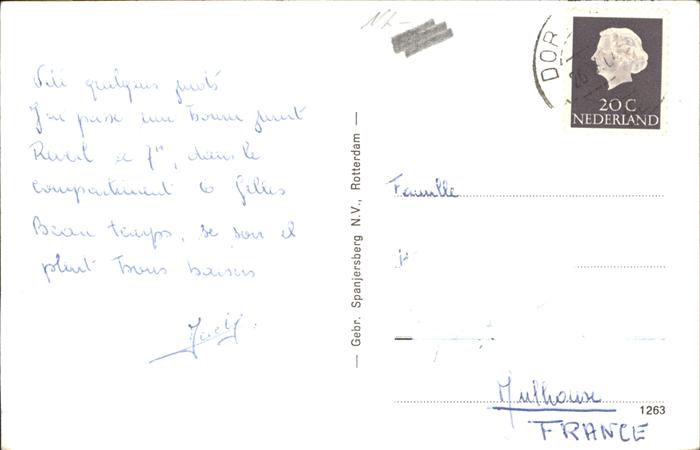 Vité quelques mots
J'ai passé une bonne nuit
Reveil a 7h, dans le
compartiment 6 filles
Beau temps, ce soir il
pleut bons baisers
Gebr. Spanjersberg N.V., Rotterdam
DOR
20 C
NEDERLAND
Famille
Mulhouse
1263
FRANCE